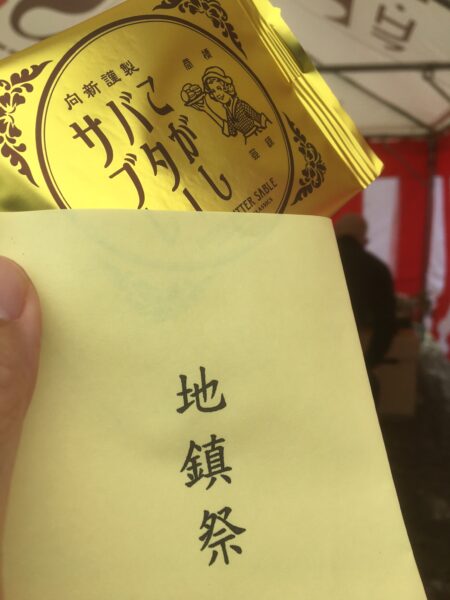 向新謹製
商標
登録
こがし
バター
サブ
TTER SABLE
地鎮祭